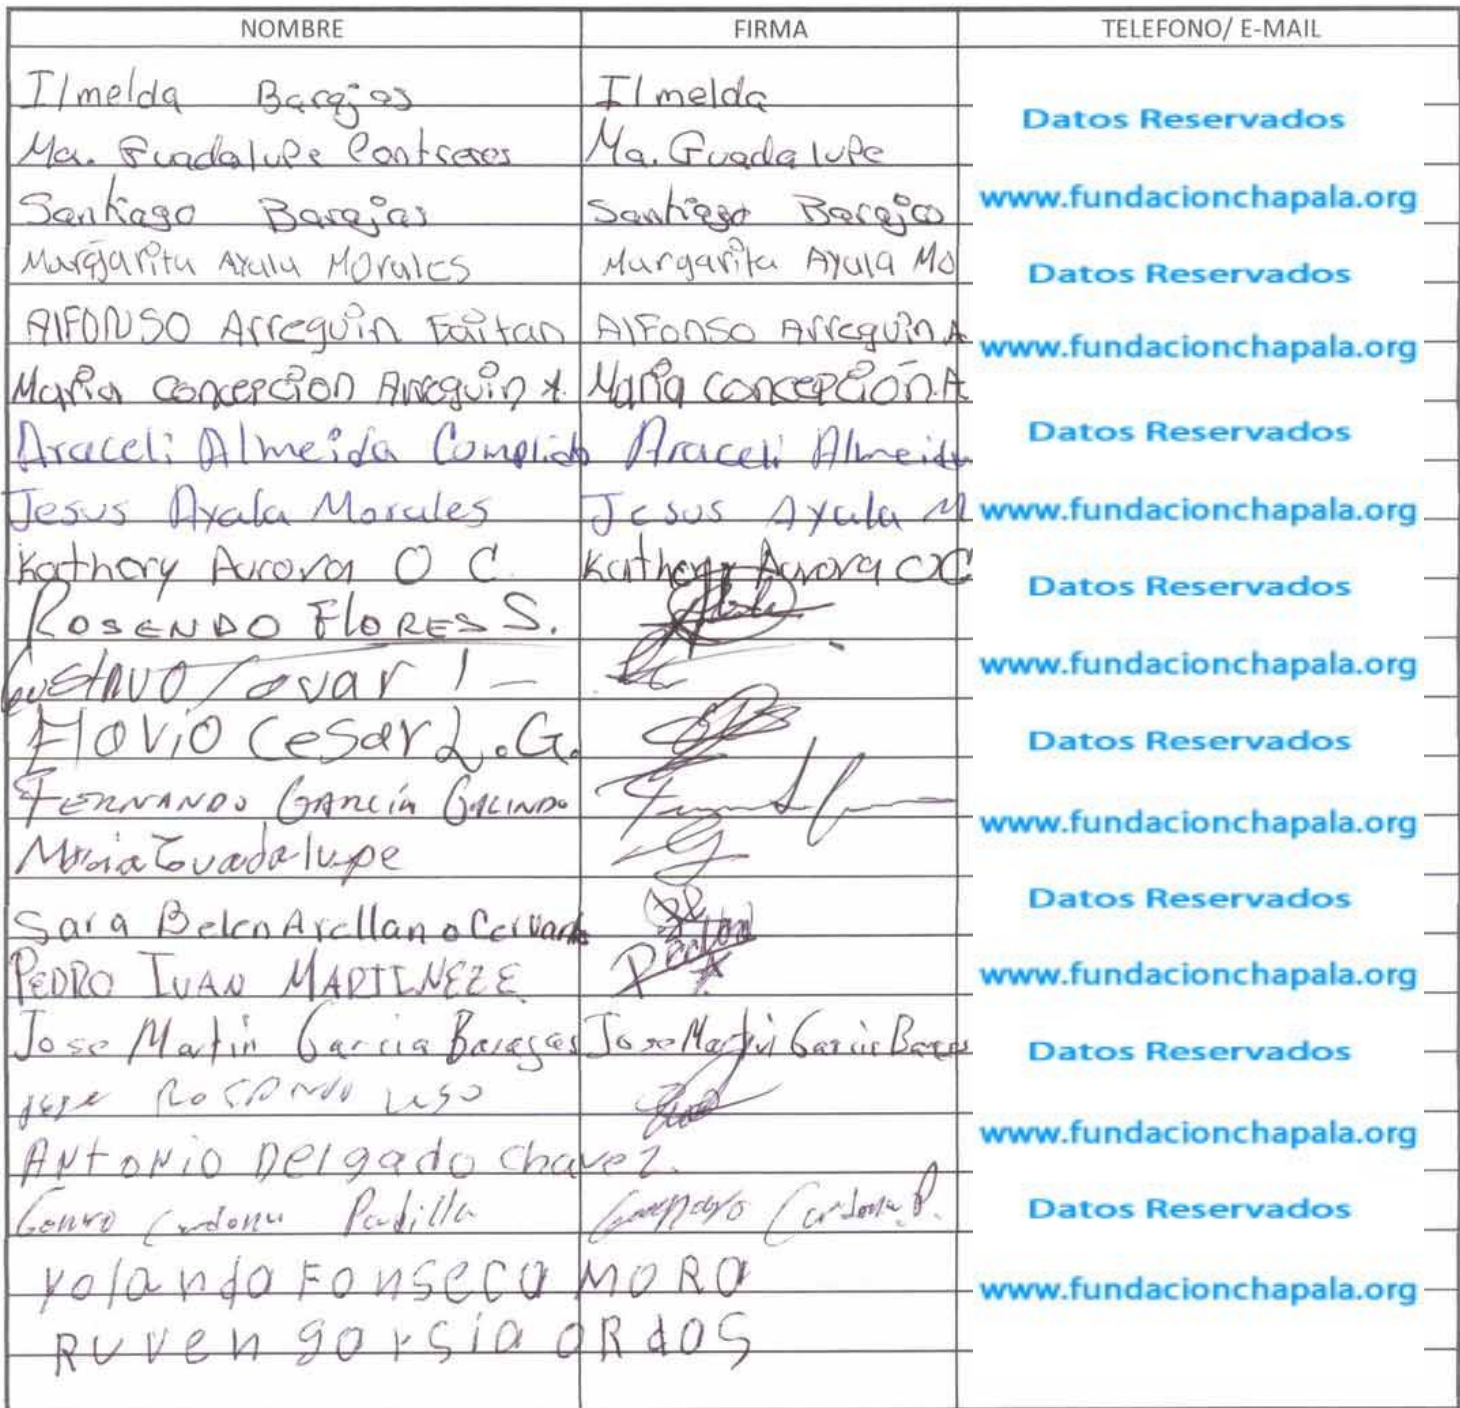 NOMBRE FIRMA TELEFONO/ E-MAIL
Ilmelda Barajas Ilmelda
Datos Reservados
Ma. Guadalupe Contreras Ma. Guadalupe
Santiago Barajas Santiago Barajas
www.fundacionchapala.org
Margarita Ayala Morales Margarita Ayala Mo
Datos Reservados
AlFONSO Arreguin AlFonso Arreguin A
www.fundacionchapala.org
Maria Concepcion Arreguin A. Maria Concepción A
Datos Reservados
Araceli Almeida Complido Araceli Almeida
Jesus Ayala Morales Jesus Ayala M
www.fundacionchapala.org
Kathery Aurora O C. Kathery Aurora OC
Datos Reservados
ROSENDO FLORES S.
www.fundacionchapala.org
GUSTAVO Tovar I
Flavio Cesar L.G.
Datos Reservados
FERNANDO GARCÍA GALINDO
www.fundacionchapala.org
Maria Guadalupe
Datos Reservados
Sara Belen Arellano Cervante
PEDRO IVAN MARTINEZ E
www.fundacionchapala.org
Jose Martin Garcia Barajas Jose Martin Garcia Barajas
Datos Reservados
www.fundacionchapala.org
ANtoNio Delgado chavez.
Datos Reservados
Genaro Cardona Padilla Genaro Cardona P.
yolanda FonsecA MORA
www.fundacionchapala.org
RUVen garsia ORdos